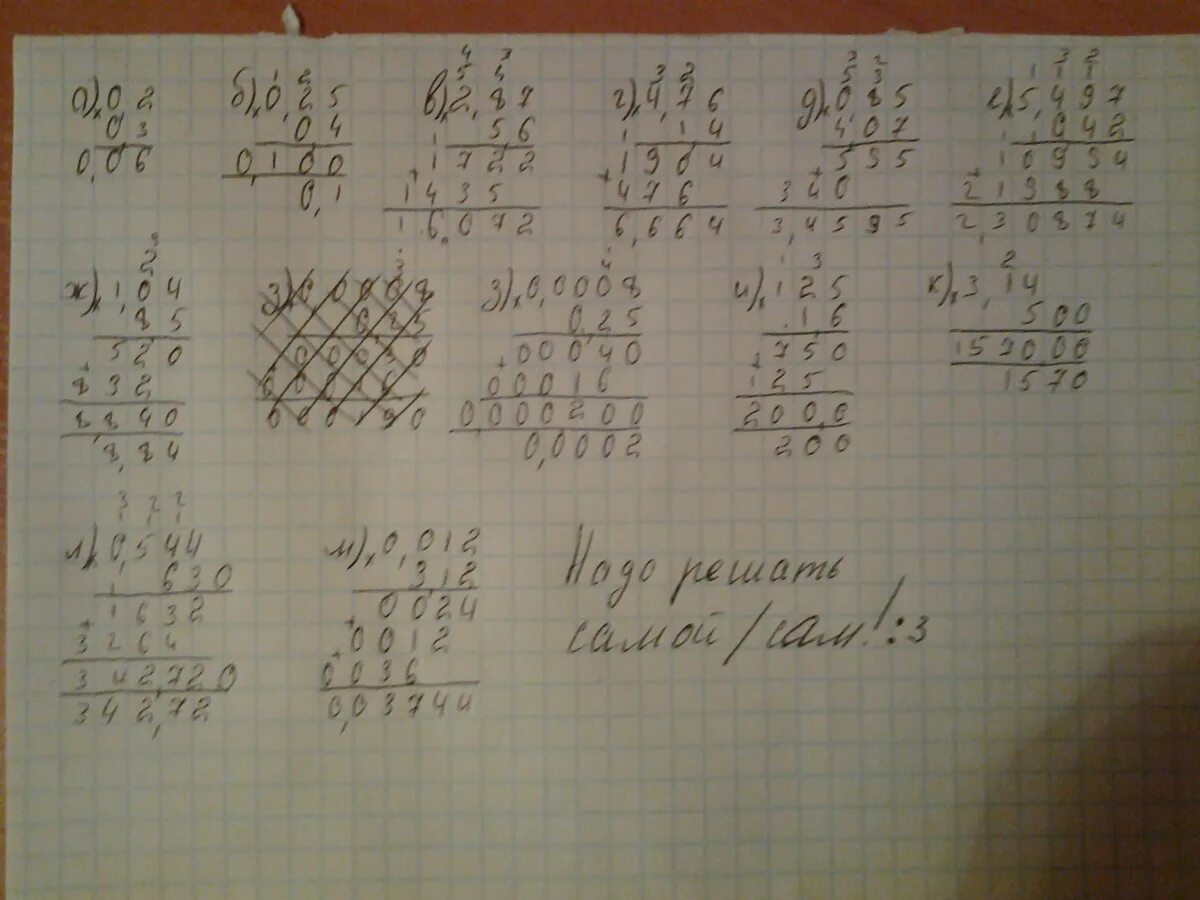 а) 0,2 б) 0,25 в) 2,87 г) 4,76 д) 0,85 е) 5,497
0,3 0,4 5,6 1,4 4,07 1,042
0,06 0,100 1722 1904 595 10994
0,1 1435 476 340 21988
16,072 6,664 3,4595 2,30874
ж) 104 з) 0,0008 и) 125 к) 3,14
85 0,25 1,6 500
520 00040 750 157000
832 00016 125 1570
8840 0000200 200,0
8,84 0,0002 200
л) 0,544 м) 0,012
630 3,12
1632 0024
3264 0012
342,720 0036
342,72 0,03744
Надо решать
самой/сам! :3